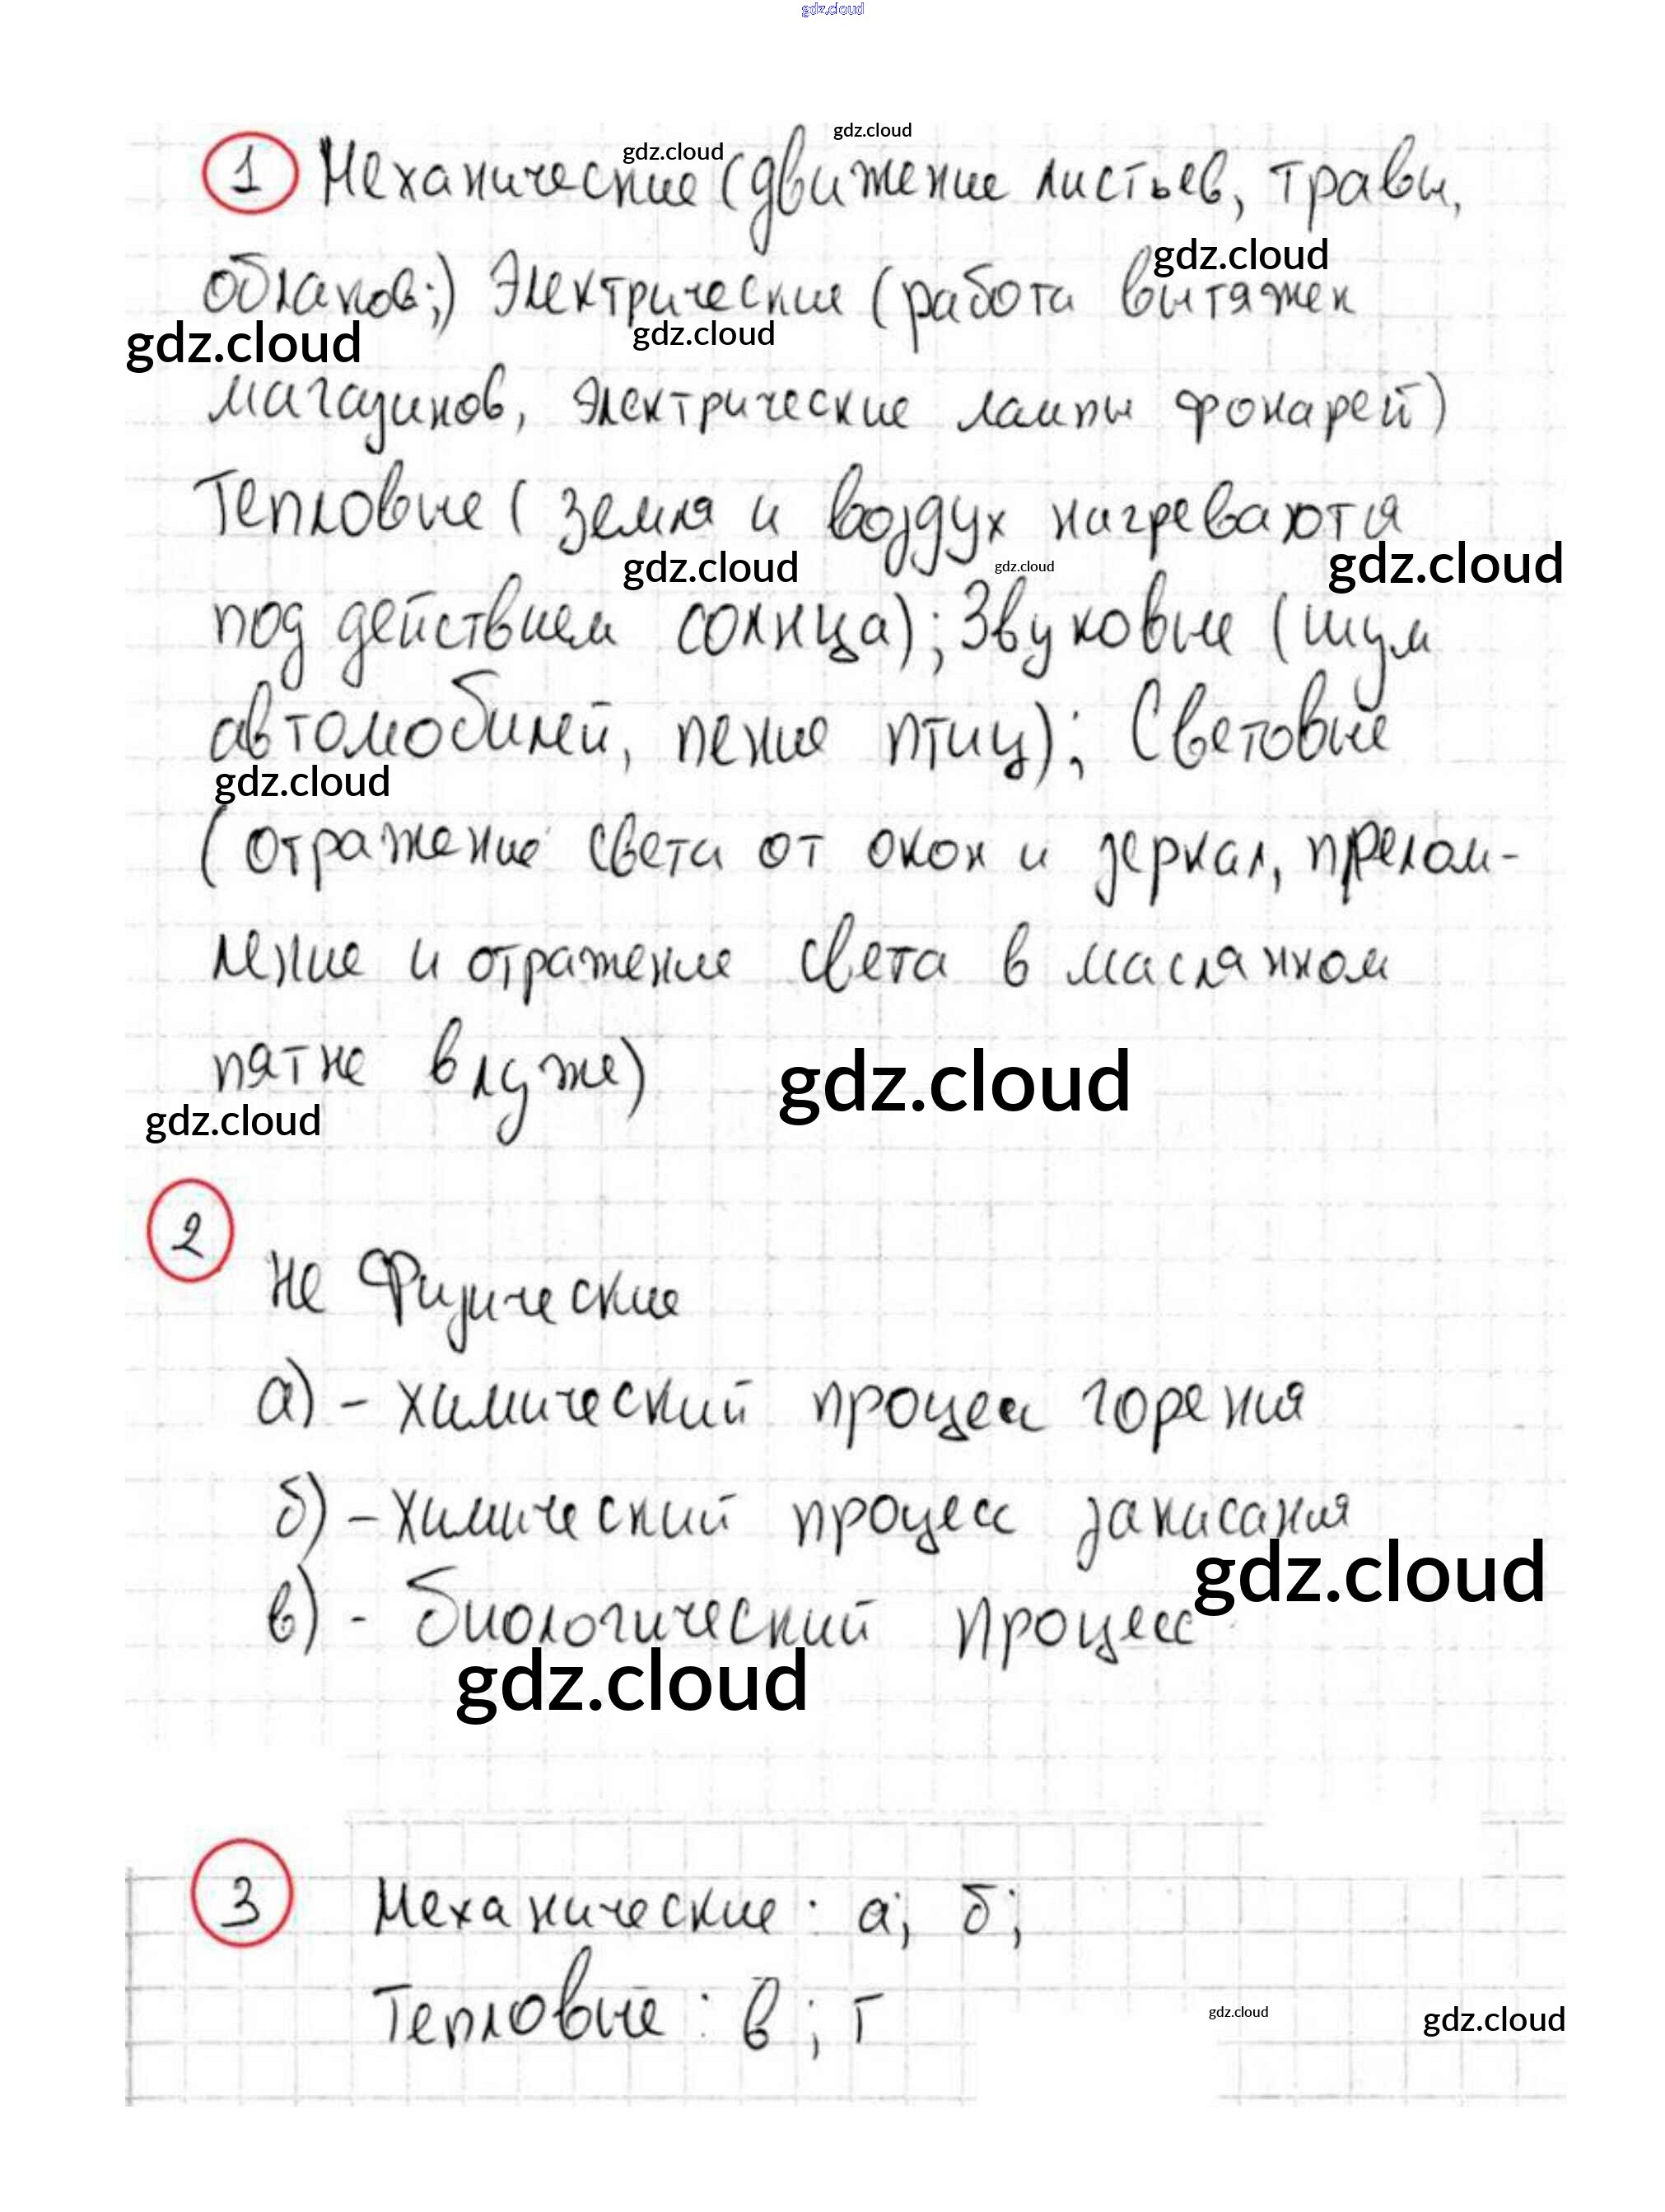 gdz.cloud
gdz.cloud
gdz.cloud
1 Механические (движение листьев, травы,
gdz.cloud
облаков;) Электрические (работа вытяжек
gdz.cloud
gdz.cloud
магазинов, электрические лампы фонарей)
Тепловые ( земля и воздух нагреваются
gdz.cloud
gdz.cloud
gdz.cloud
под действием солнца); Звуковые (шум
автомобилей, пение птиц); Световые
gdz.cloud
( отражение света от окон и зеркал, прелом-
ление и отражение света в маслянном
пятне в луже)
gdz.cloud
gdz.cloud
2
Не Физические
а) - химический процесс горения
б) - химический процесс закисания
gdz.cloud
в) - биологический процесс
gdz.cloud
3 Механические: а; б;
Тепловые: в; г
gdz.cloud
gdz.cloud